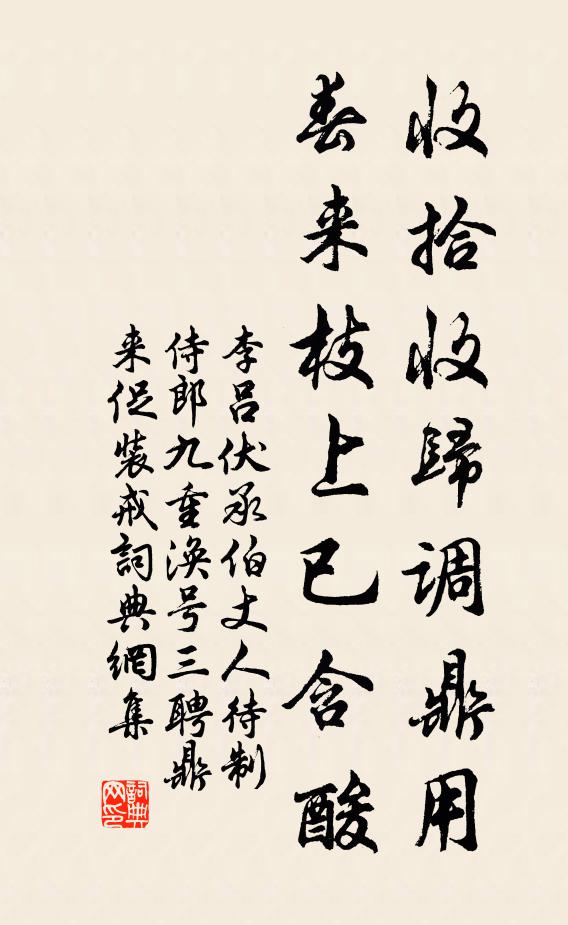 收拾收歸调鼎用
春来枝上已含酸
李呂伏承伯丈人待制
侍郎九重涣号三聘鼎
来促裝戒詞典網集
詞典网印